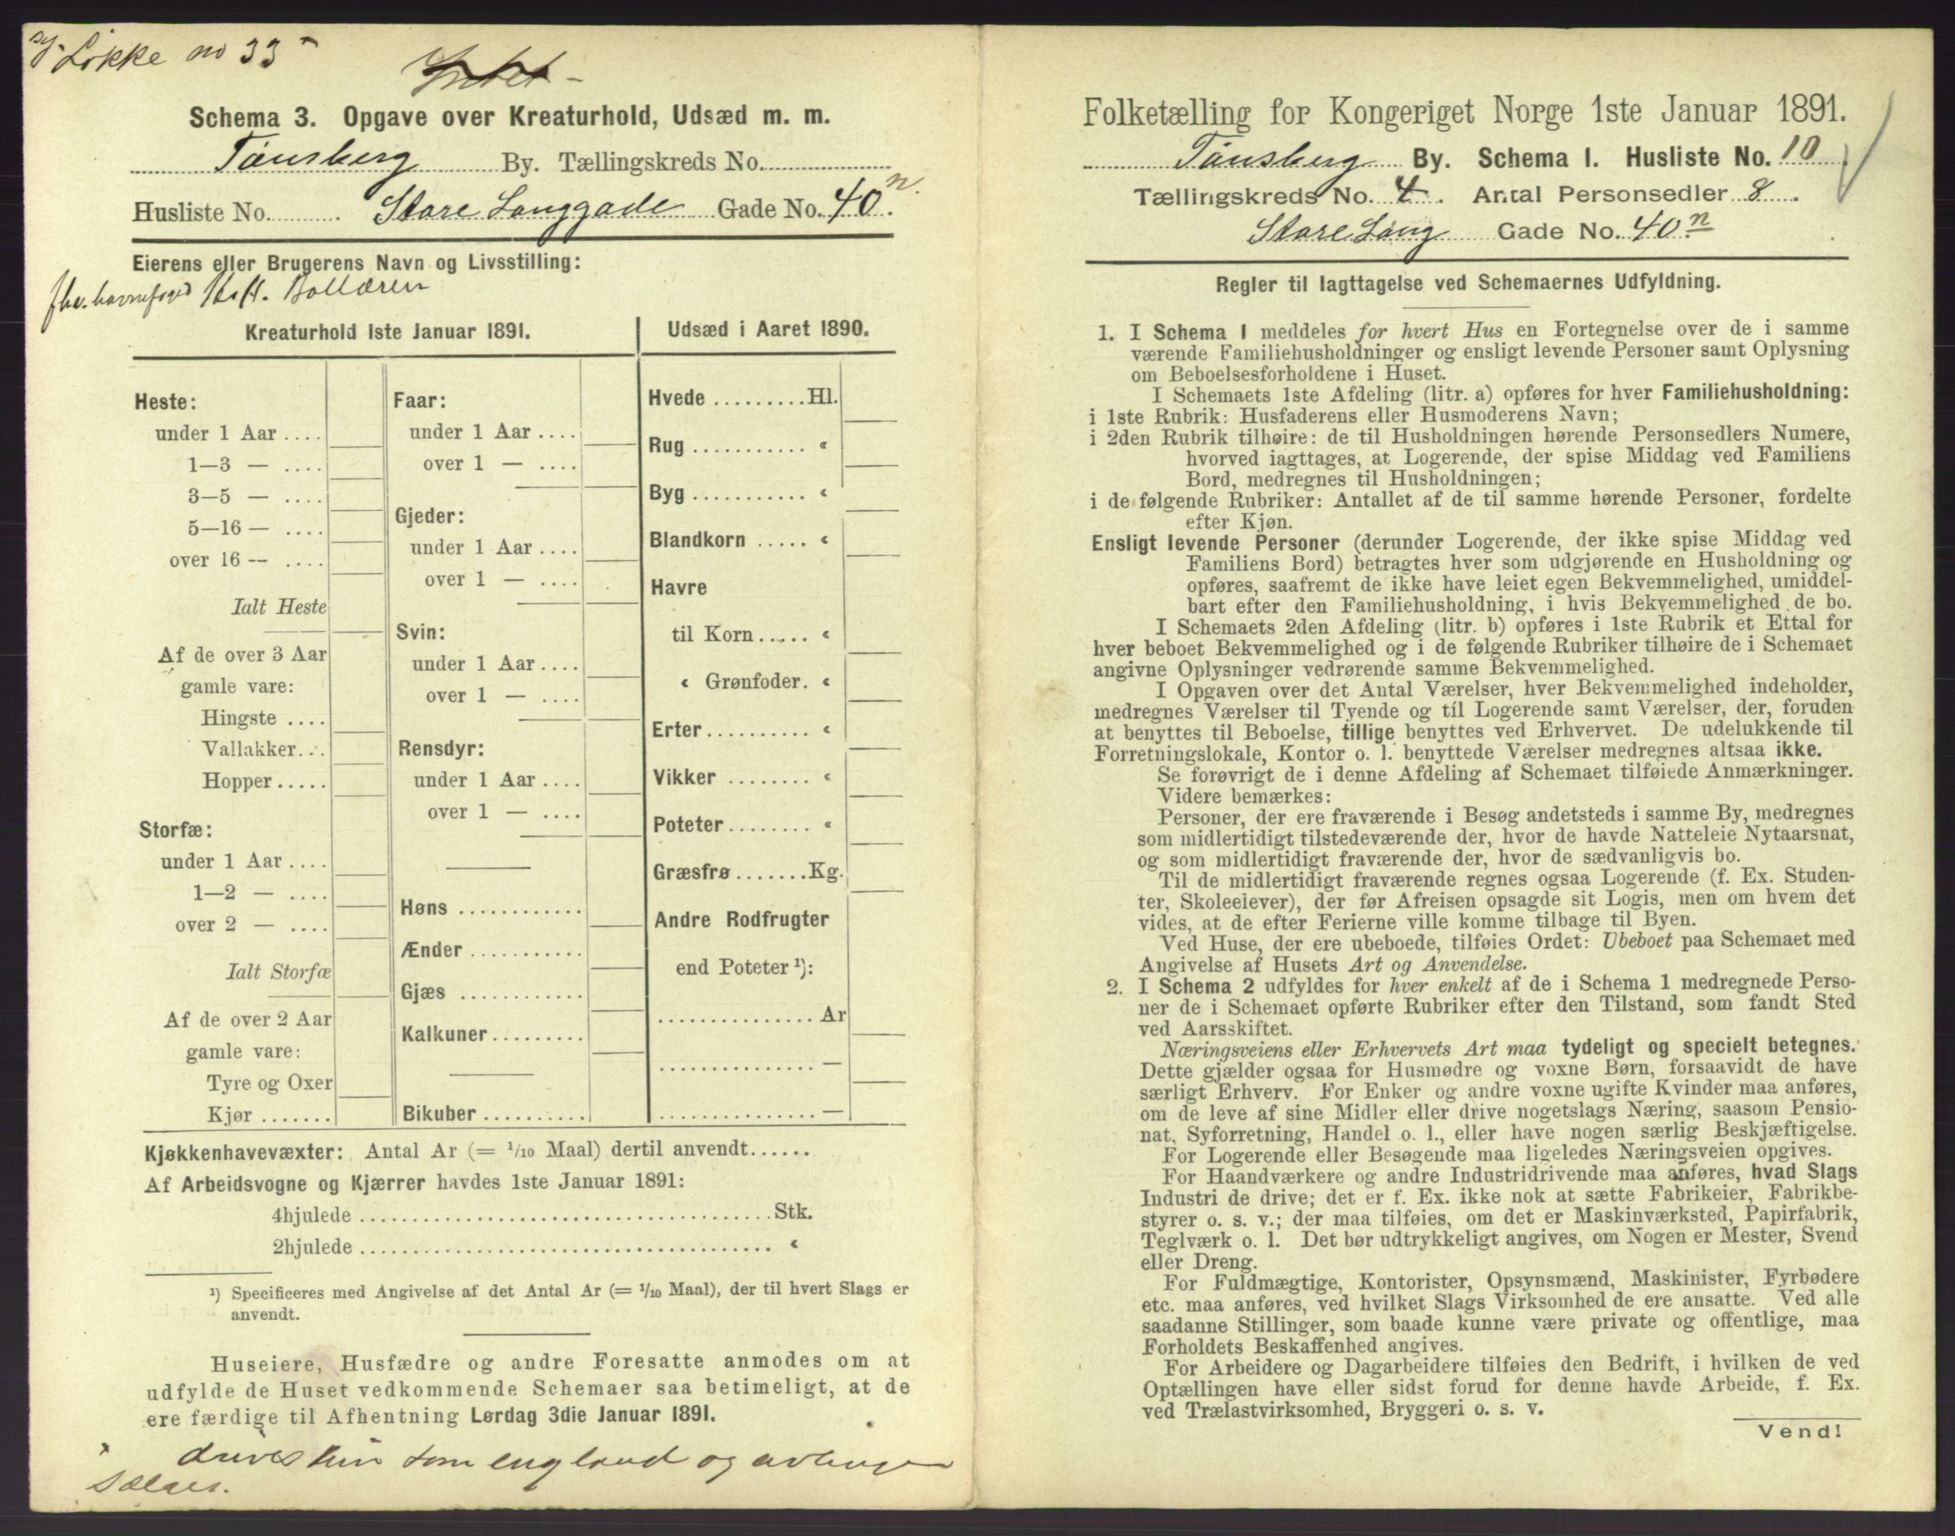 Løkke no 33
Intet
Schema 3. Opgave over Kreaturhold, Udsæd m. m.
Tønsberg By. Tællingskreds No.
Husliste No. Store Langgade Gade No. 40 n.
Eierens eller Brugerens Navn og Livsstilling:
fhv. havnefoged Bollæren
Kreaturhold 1ste Januar 1891.
Heste:
under 1 Aar ....
1—3 — ....
3—5 — ....
5—16 — ....
over 16 — ....
Ialt Heste
Af de over 3 Aar
gamle vare:
Hingste ....
Vallakker...
Hopper.....
Storfæ:
under 1 Aar ....
1—2 — ....
over 2 — ....
Ialt Storfæ
Af de over 2 Aar
gamle vare:
Tyre og Oxer
Kjør .......
Faar:
under 1 Aar ....
over 1 — ....
Gjeder:
under 1 Aar ....
over 1 — ....
Svin:
under 1 Aar ....
over 1 — ....
Rensdyr:
under 1 Aar ....
over 1 — ....
Høns ............
Ænder ...........
Gjæs ............
Kalkuner.........
Bikuber ..........
Udsæd i Aaret 1890.
Hvede .........Hl.
Rug ........... «
Byg ........... «
Blandkorn ..... «
Havre
til Korn..... «
« Grønfoder. «
Erter.......... «
Vikker ........ «
Poteter........ «
Græsfrø.......Kg.
Andre Rodfrugter
end Poteter ¹):
............... Ar
............... —
............... —
Kjøkkenhavevæxter: Antal Ar (= 1/10 Maal) dertil anvendt......
Af Arbeidsvogne og Kjærrer havdes 1ste Januar 1891:
4hjulede ........................................Stk.
2hjulede ........................................ «
¹) Specificeres med Angivelse af det Antal Ar (= 1/10 Maal), der til hvert Slags er
anvendt.
Huseiere, Husfædre og andre Foresatte anmodes om at
udfylde de Huset vedkommende Schemaer saa betimeligt, at de
ere færdige til Afhentning Lørdag 3die Januar 1891.
drives kun som england og avlingen
sælges.
Folketælling for Kongeriget Norge 1ste Januar 1891.
Tønsberg By. Schema 1. Husliste No. 10
Tællingskreds No. 4. Antal Personsedler 8.
Store Lang Gade No. 40 n
Regler til Iagttagelse ved Schemaernes Udfyldning.
1. I Schema 1 meddeles for hvert Hus en Fortegnelse over de i samme
værende Familiehusholdninger og ensligt levende Personer samt Oplysning
om Beboelsesforholdene i Huset.
I Schemaets 1ste Afdeling (litr. a) opføres for hver Familiehusholdning:
i 1ste Rubrik: Husfaderens eller Husmoderens Navn;
i 2den Rubrik tilhøire: de til Husholdningen hørende Personsedlers Numere,
hvorved iagttages, at Logerende, der spise Middag ved Familiens
Bord, medregnes til Husholdningen;
i de følgende Rubriker: Antallet af de til samme hørende Personer, fordelte
efter Kjøn.
Ensligt levende Personer (derunder Logerende, der ikke spise Middag ved
Familiens Bord) betragtes hver som udgjørende en Husholdning og
opføres, saafremt de ikke have leiet egen Bekvemmelighed, umiddel-
bart efter den Familiehusholdning, i hvis Bekvemmelighed de bo.
I Schemaets 2den Afdeling (litr. b) opføres i 1ste Rubrik et Ettal for
hver beboet Bekvemmelighed og i de følgende Rubriker tilhøire de i Schemaet
angivne Oplysninger vedrørende samme Bekvemmelighed.
I Opgaven over det Antal Værelser, hver Bekvemmelighed indeholder,
medregnes Værelser til Tyende og til Logerende samt Værelser, der, foruden
at benyttes til Beboelse, tillige benyttes ved Erhvervet. De udelukkende til
Forretningslokale, Kontor o. l. benyttede Værelser medregnes altsaa ikke.
Se forøvrigt de i denne Afdeling af Schemaet tilføiede Anmærkninger.
Videre bemærkes:
Personer, der ere fraværende i Besøg andetsteds i samme By, medregnes
som midlertidigt tilstedeværende der, hvor de havde Natteleie Nytaarsnat,
og som midlertidigt fraværende der, hvor de sædvanligvis bo.
Til de midlertidigt fraværende regnes ogsaa Logerende (f. Ex. Studen-
ter, Skoleeiever), der før Afreisen opsagde sit Logis, men om hvem det
vides, at de efter Ferierne ville komme tilbage til Byen.
Ved Huse, der ere ubeboede, tilføies Ordet: Ubeboet paa Schemaet med
Angivelse af Husets Art og Anvendelse.
2. I Schema 2 udfyldes for hver enkelt af de i Schema 1 medregnede Perso-
ner de i Schemaet opførte Rubriker efter den Tilstand, som fandt Sted
ved Aarsskiftet.
Næringsveiens eller Erhvervets Art maa tydeligt og specielt betegnes.
Dette gjælder ogsaa for Husmødre og voxne Børn, forsaavidt de have
særligt Erhverv. For Enker og andre voxne ugifte Kvinder maa anføres,
om de leve af sine Midler eller drive nogetslags Næring, saasom Pensio-
nat, Syforretning, Handel o. l., eller have nogen særlig Beskjæftigelse.
For Logerende eller Besøgende maa ligeledes Næringsveien opgives.
For Haandværkere og andre Industridrivende maa anføres, hvad Slags
Industri de drive; det er f. Ex. ikke nok at sætte Fabrikeier, Fabrikbe-
styrer o. s. v.; der maa tilføies, om det er Maskinværksted, Papirfabrik,
Teglværk o. l. Det bør udtrykkeligt angives, om Nogen er Mester, Svend
eller Dreng.
For Fuldmægtige, Kontorister, Opsynsmænd, Maskinister, Fyrbødere
etc. maa anføres, ved hvilket Slags Virksomhed de ere ansatte. Ved alle
saadanne Stillinger, som baade kunne være private og offentlige, maa
Forholdets Beskaffenhed angives.
For Arbeidere og Dagarbeidere tilføies den Bedrift, i hvilken de ved
Optællingen have eller sidst forud for denne havde Arbeide, f. Ex.
ved Trælastvirksomhed, Bryggeri o. s. v.
Vend!